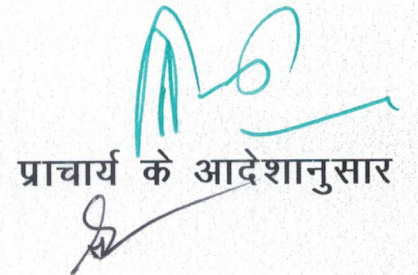 प्राचार्य के आदेशानुसार